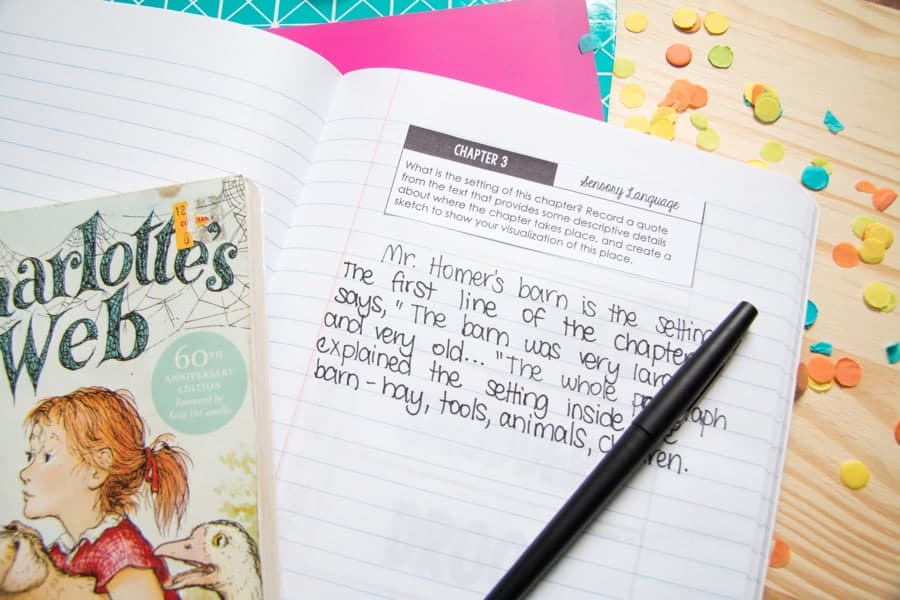 CHAPTER 3
Sensory Language
What is the setting of this chapter? Record a quote
from the text that provides some descriptive details
about where the chapter takes place, and create a
sketch to show your visualization of this place.
Mr. Homer's barn is the setting
The first line of the chapter
says, "The barn was very
and very old... "The whole
explained the setting inside
barn - hay, tools, animals,
arlotte's
Web
60TH
ANNIVERSARY
EDITION
Foreword by
Kate DiCamillo
12